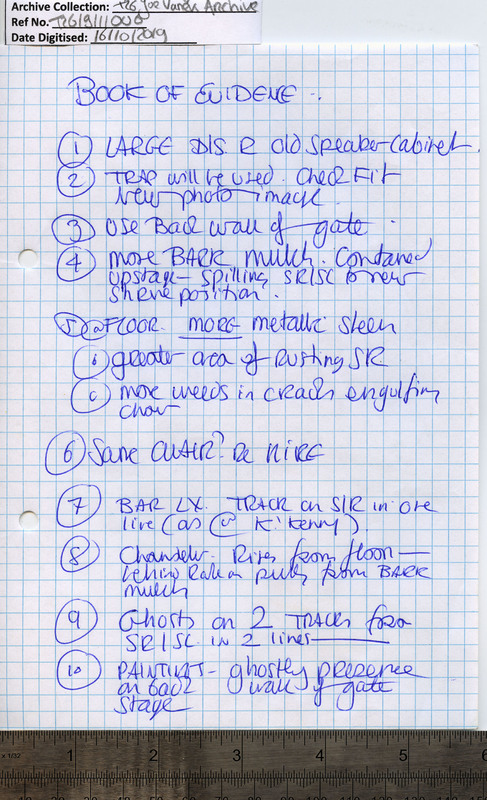 Archive Collection: T26 Joe Vanek Archive
Ref No. T26/9/1/1
Date Digitised: 16/10/2019
BOOK OF EVIDENE
1 LARGE DIS. R Old Speaker Cabinet.
2 TRAP will be used. Check Fit
New photo image
3 Use Back wall of gate.
4 more BARK mulch. Contained
upstage - spilling SR/SC to new
Shrine position.
5 a FLOOR. MORE metallic Sheen
b greater area of Rusting SR
c more weeds in cracks engulfing
chair
6 Same CHAIR? Re HIRE
7 BAR LX. TRACK on S/R in one
line (as @ K'Kenny).
8 Chandelier. Rises from floor
behind from BARK
mulch
9 Ghosts on 2 TRACKS from
SR/SC. in 2 lines
10 ghostly presence
on back wall of gate
Stage
x 1/32 1 2 3 4 5 6